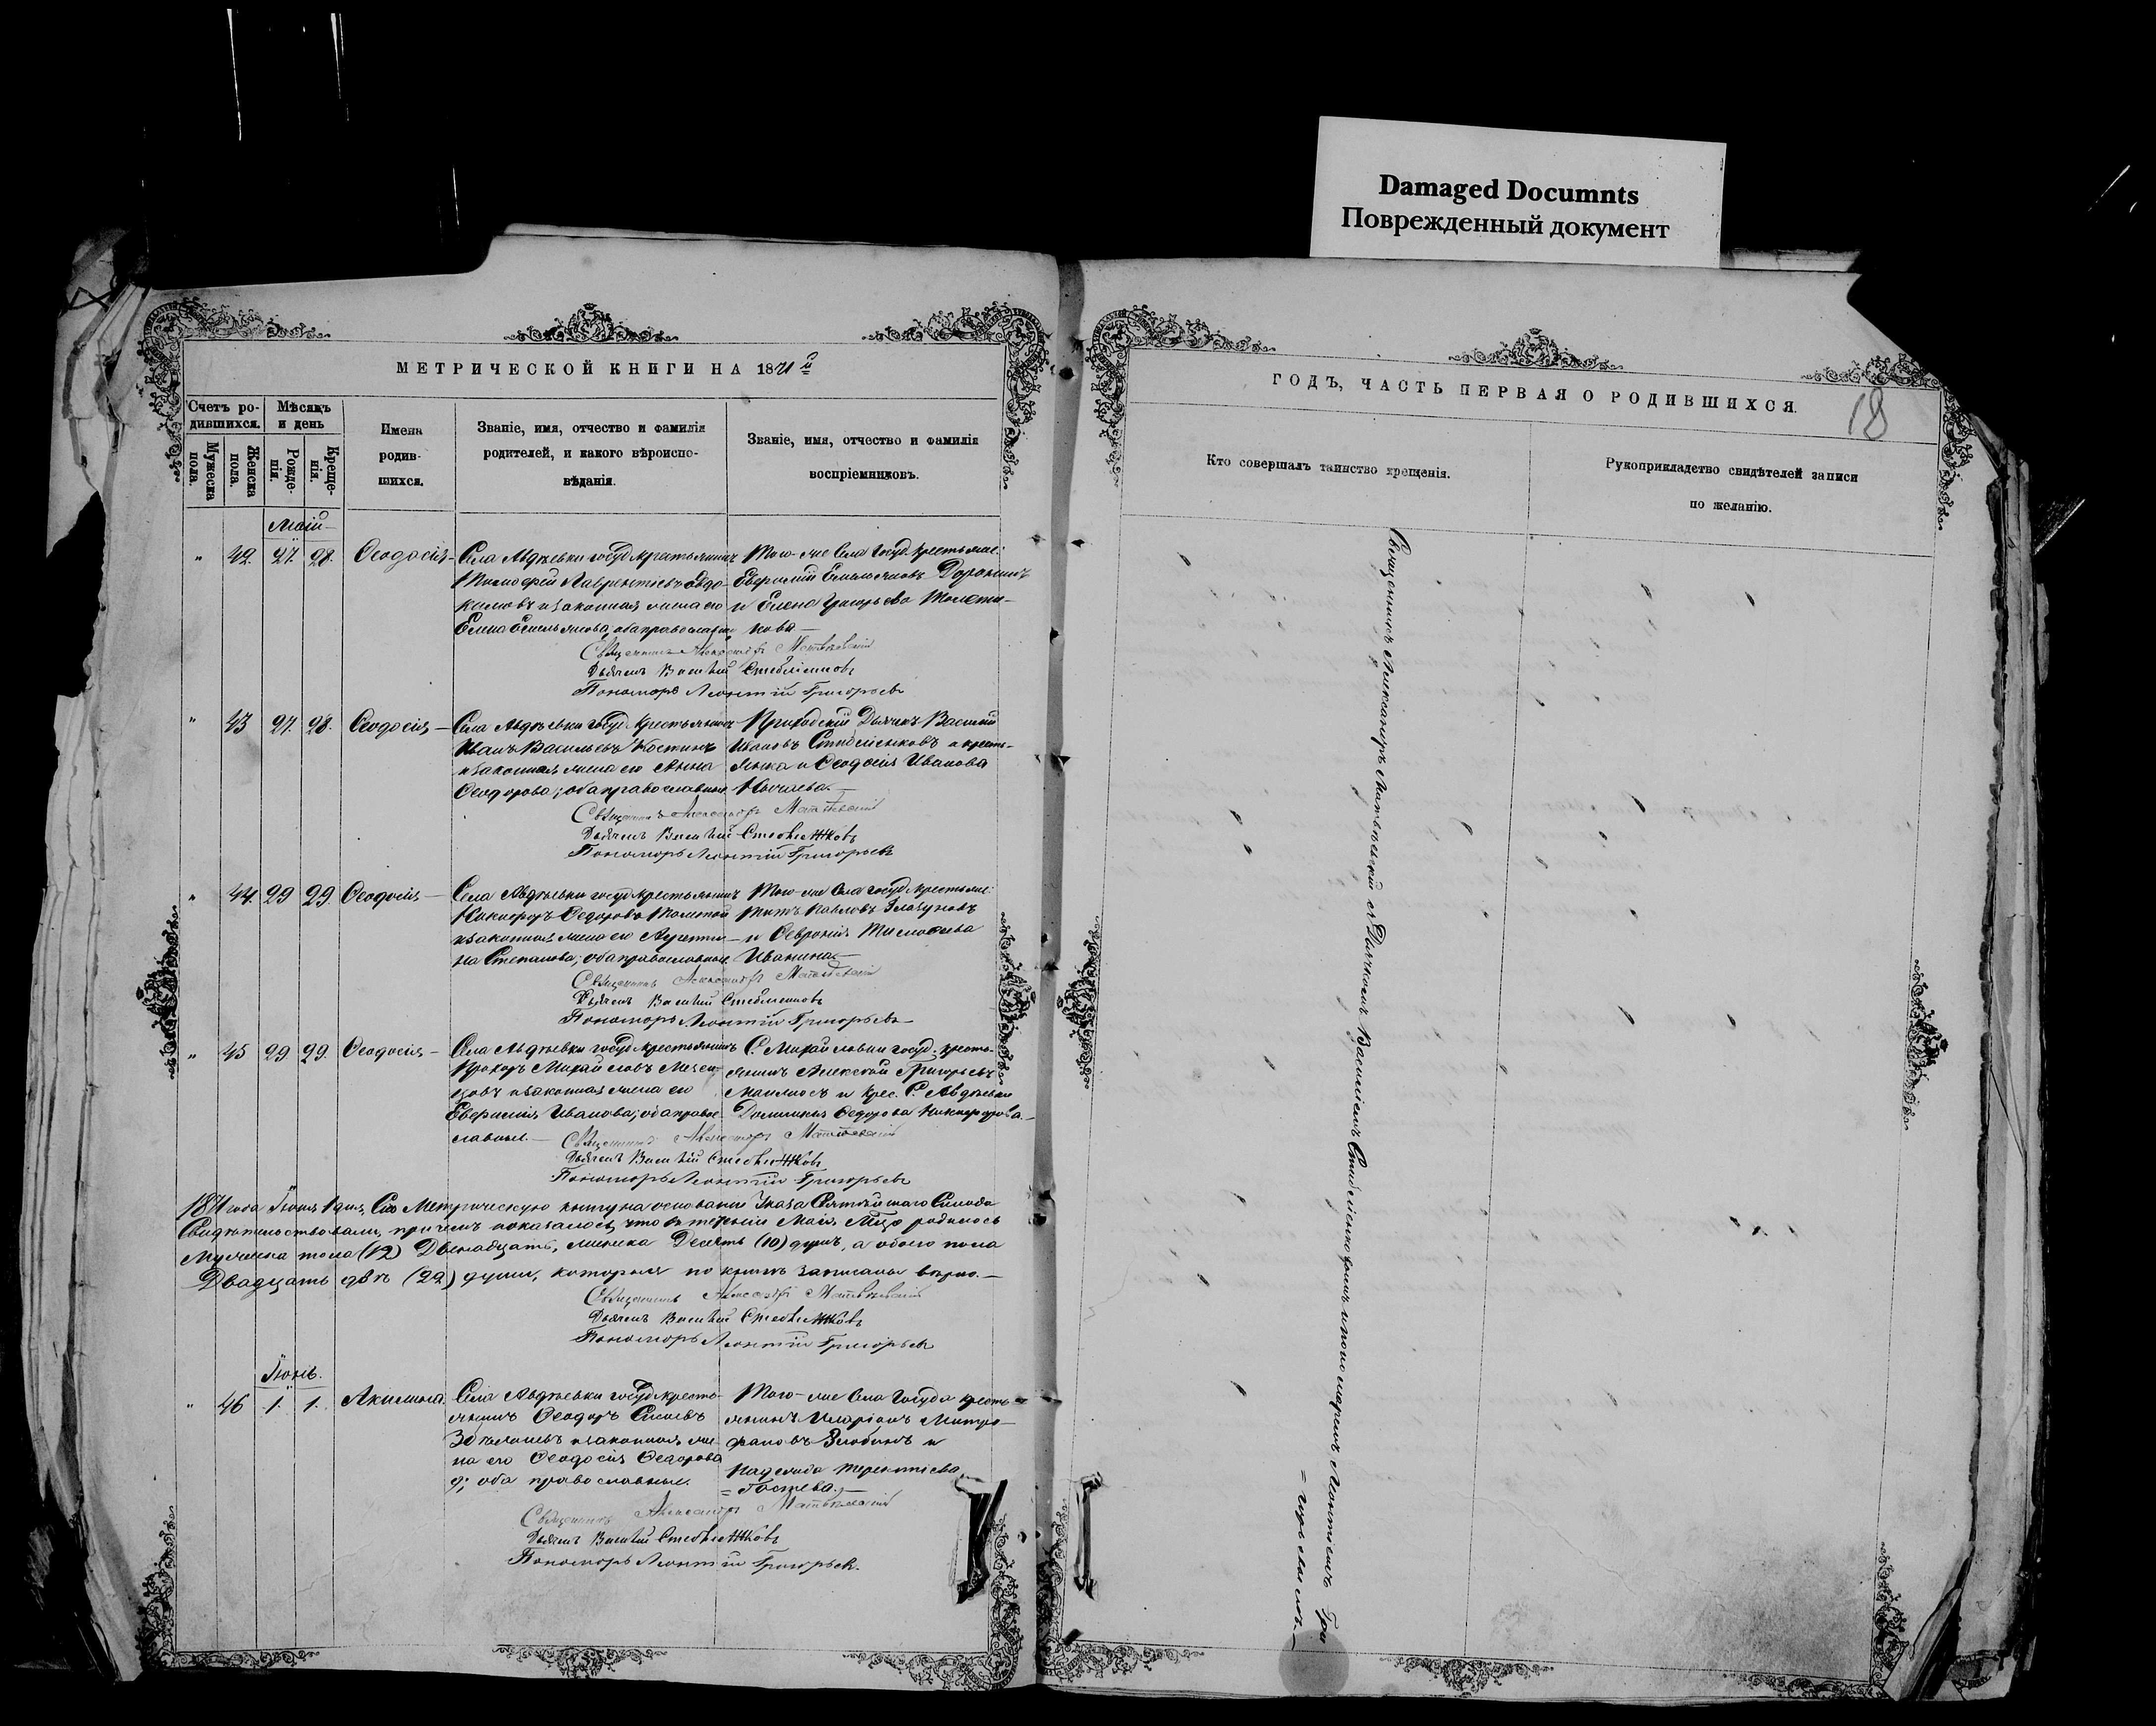 Damaged Documnts
Поврежденный документ
МЕТРИЧЕСКОЙ КНИГИ НА 1871 й
ГОДЪ, ЧАСТЬ ПЕРВАЯ О РОДИВШИХСЯ.
18
Счетъ ро-
дившихся.
Мужеска
пола.
Женска
пола.
Мѣсяцъ
и день
Рожде-
нія.
Креще-
нія.
Имена
родив-
шихся.
Званіе, имя, отчество и фамилія
родителей, и какого вѣроиспо-
вѣданія.
Званіе, имя, отчество и фамилія
воспріемниковъ.
Кто совершалъ таинство крещенія.
Рукоприкладство свидѣтелей записи
по желанію.
Маій
" 42. 27. 28. Ѳеодосія
Села Авдѣевки госуд. крестьянинъ
Тимофей Лаврентіевъ Евдо-
кимовъ и законная жена его
Елена Емельянова, оба православные
Того-же Села Госуд. крестьяне:
Евфимій Емельяновъ Доронинъ
и Елена Григорьева
Священникъ Александръ
Дьячекъ Василій
Пономорь Леонтій Григорьевъ
" 43 27. 28. Ѳеодосія
Села Авдѣевки госуд. крестьянинъ
Иванъ Васильевъ Костинъ
и законная жена его Анна
Ѳеодорова; оба православные
Приходскій Дьячекъ Василій
Ивановъ и кресть-
янка Ѳеодосія Иванова
Священникъ Александръ
Дьячекъ Василій
Пономорь Леонтій Григорьевъ
" 44. 29 29. Ѳеодосія
Села Авдѣевки госуд. крестьянинъ
Никифоръ Ѳедоровъ Толстой
и законная жена его
Степанова; оба православные
Того-же Села госуд. крестьяне:
Титъ Павловъ Глазуновъ
и Ѳевронія Тимофеева
Иванина.
Священникъ Александръ
Дьячекъ Василій
Пономорь Леонтій Григорьевъ
" 45 29 29. Ѳеодосія
Села Авдѣевки госуд. крестьянинъ
Прохоръ Михайловъ Мезен-
цовъ и законная жена его
Евфимія Иванова; оба право-
славные.
С. Михайловки госуд. кресть-
янинъ Алексѣй Григорьевъ
и крес. С. Авдѣевки
Ѳедорова Никифорова.
Священникъ Александръ
Дьячекъ Василій
Пономорь Леонтій Григорьевъ
1871 года Іюня 1 дня, Сію Метрическую книгу на основаніи Указа Святѣйшаго Синода
Свидѣтельствовали, причемъ показалось, что въ теченіи Маія М-ца родилось
Мужеска пола (12) Двѣнадцать, женска Десять (10) душъ, а обоего пола
Двадцать двѣ (22) души, которыя по книгѣ записаны вѣрно.
Священникъ Александръ
Дьячекъ Василій
Пономорь Леонтій Григорьевъ
Іюнь.
" 46 1. 1. Акилина.
Села Авдѣевки госуд. кресть-
янинъ Ѳеодоръ
и законная же-
на его Ѳеодосія Ѳедорова
оба православные.
Того-же Села Госуда кресть-
янинъ Иларіонъ Митро-
фановъ Злобинъ и
Надежда Терентіева
Гостева.
Священникъ Александръ
Дьячекъ Василій
Пономорь Леонтій Григорьевъ.
Священникъ Александръ съ Дьячкомъ Василіемъ и пономаремъ Леонтіемъ Гри
=горьевымъ.